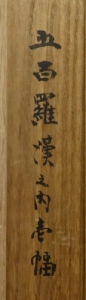 五百羅漢之内壱幅